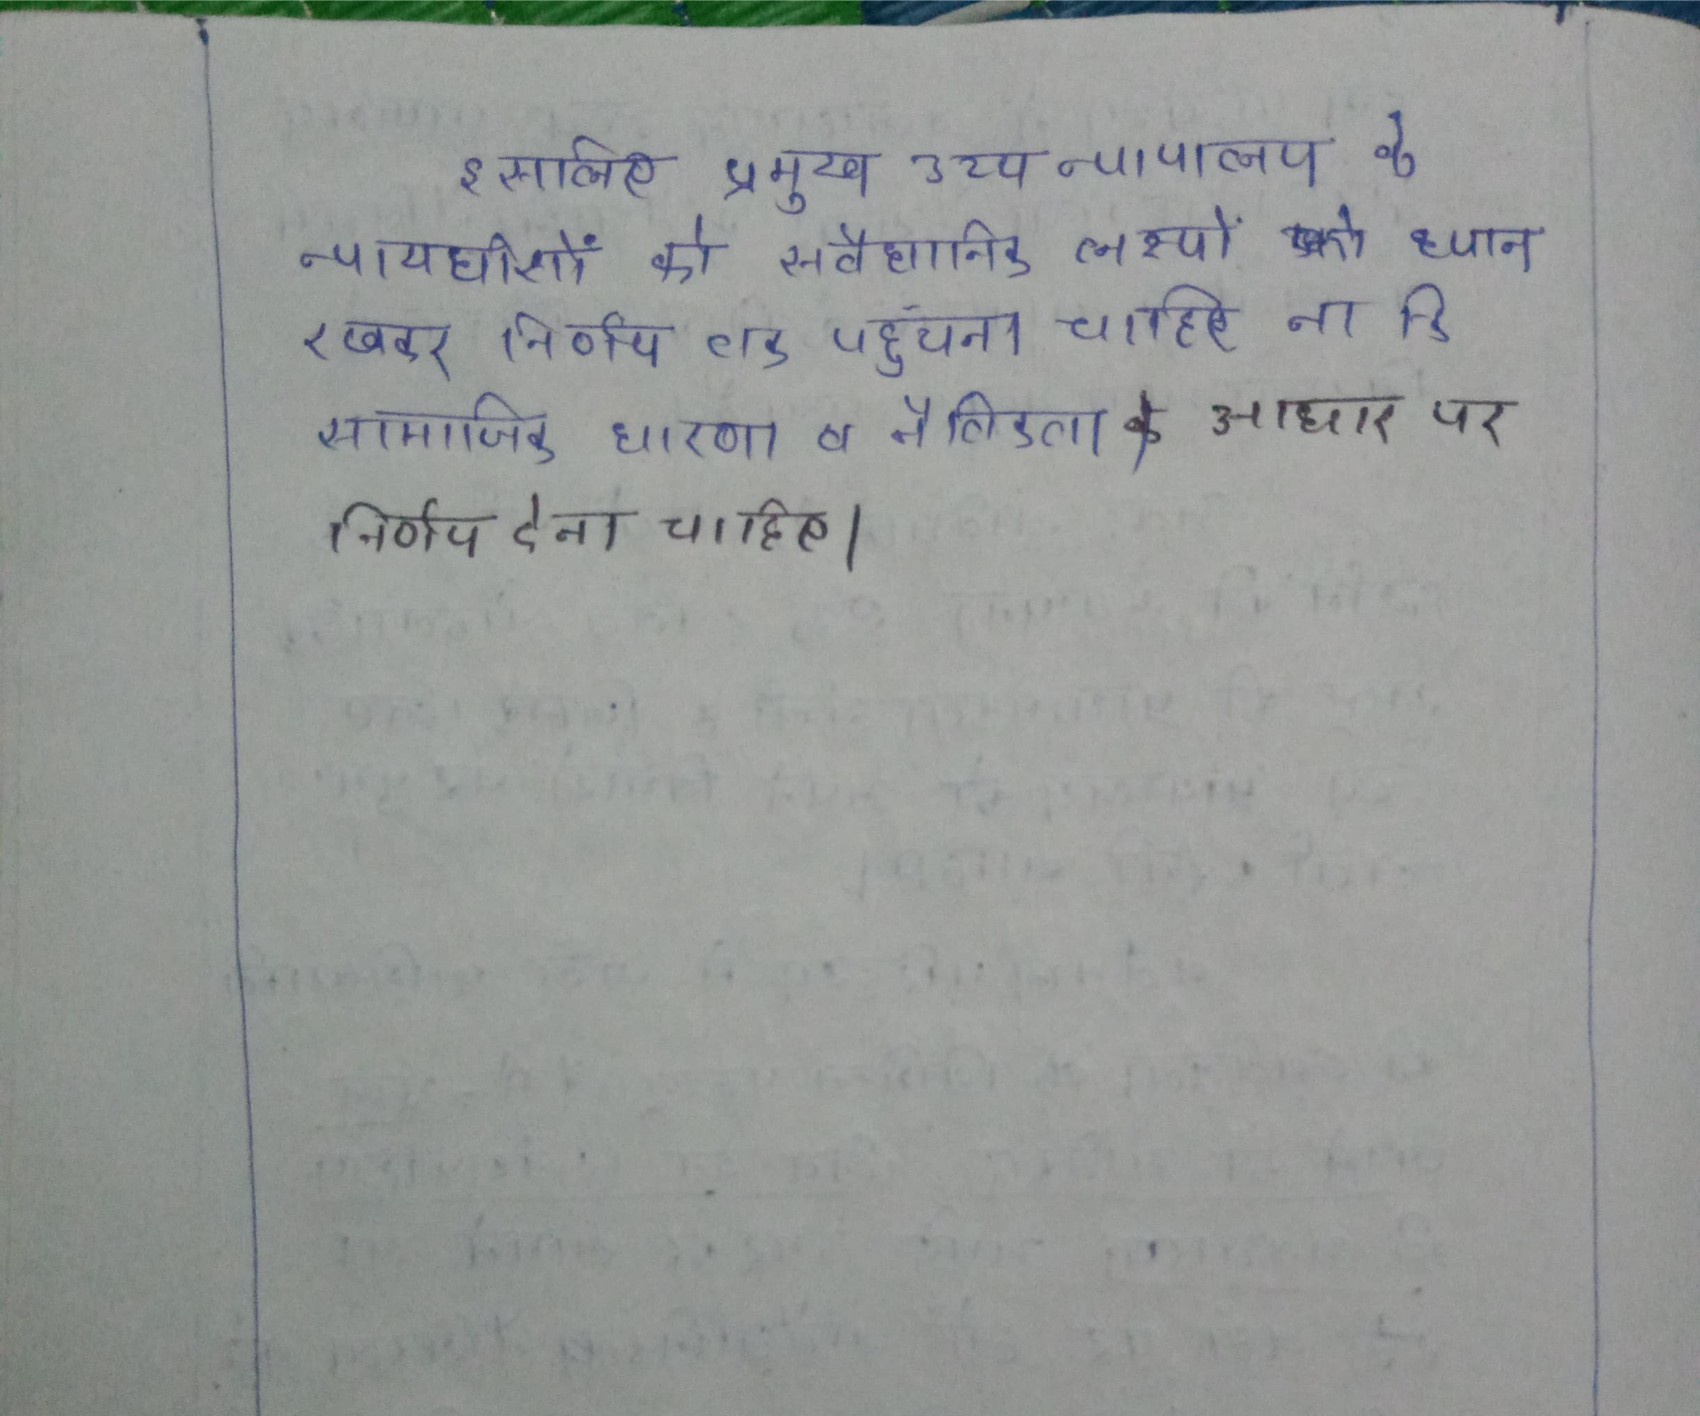 इसलिए प्रमुख उच्च न्यायालय के
न्यायधीसों को सवैधानिक लक्ष्यों को ध्यान
रखकर निर्णय तक पहुंचना चाहिए ना कि
सामाजिक धारणा व नैतिकता के आधार पर
निर्णय देना चाहिए।